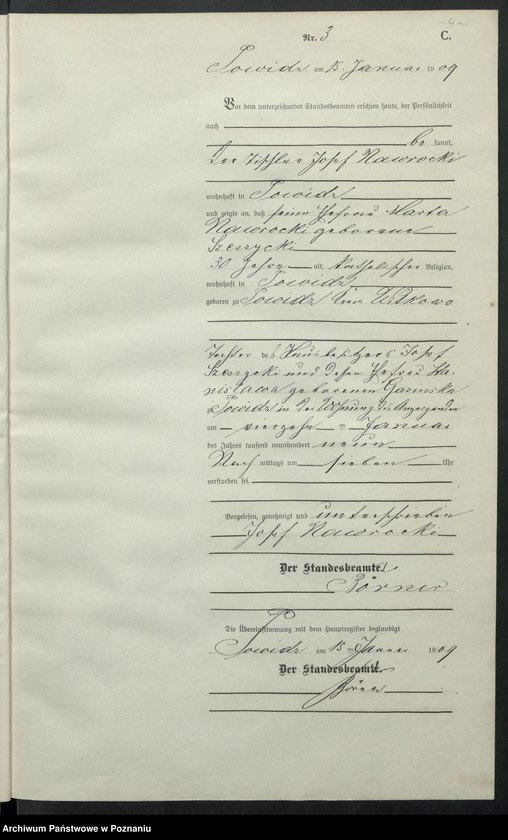 -4-
Nr. 3 C.
Powidz am 15. Januar 1909
Vor dem unterzeichneten Standesbeamten erschien heute, der Persönlichkeit
nach
be kannt,
der Tischler Josef Nawrocki
wohnhaft in Powidz
und zeigte an, daß seine Ehefrau Marta
Nawrocki geborene
30 Jahre alt, katholischer Religion,
wohnhaft in Powidz
geboren zu Powidz Kreis Witkowo
Tochter des Hausbesitzers Josef
und dessen Ehefrau Sta-
nislawa geborenen
zu Powidz in der Wohnung des Anzeigenden
am vierzehn ten Januar
des Jahres tausend neunhundert neun
Nach mittags um sieben Uhr
verstorben sei.
Vorgelesen, genehmigt und unterschrieben
Josef Nawrocki
Der Standesbeamte.
Börner
Die Übereinstimmung mit dem Hauptregister beglaubigt
Powidz am 15. Januar 1909
Der Standesbeamte.
Börner
Archiwum Państwowe w Poznaniu